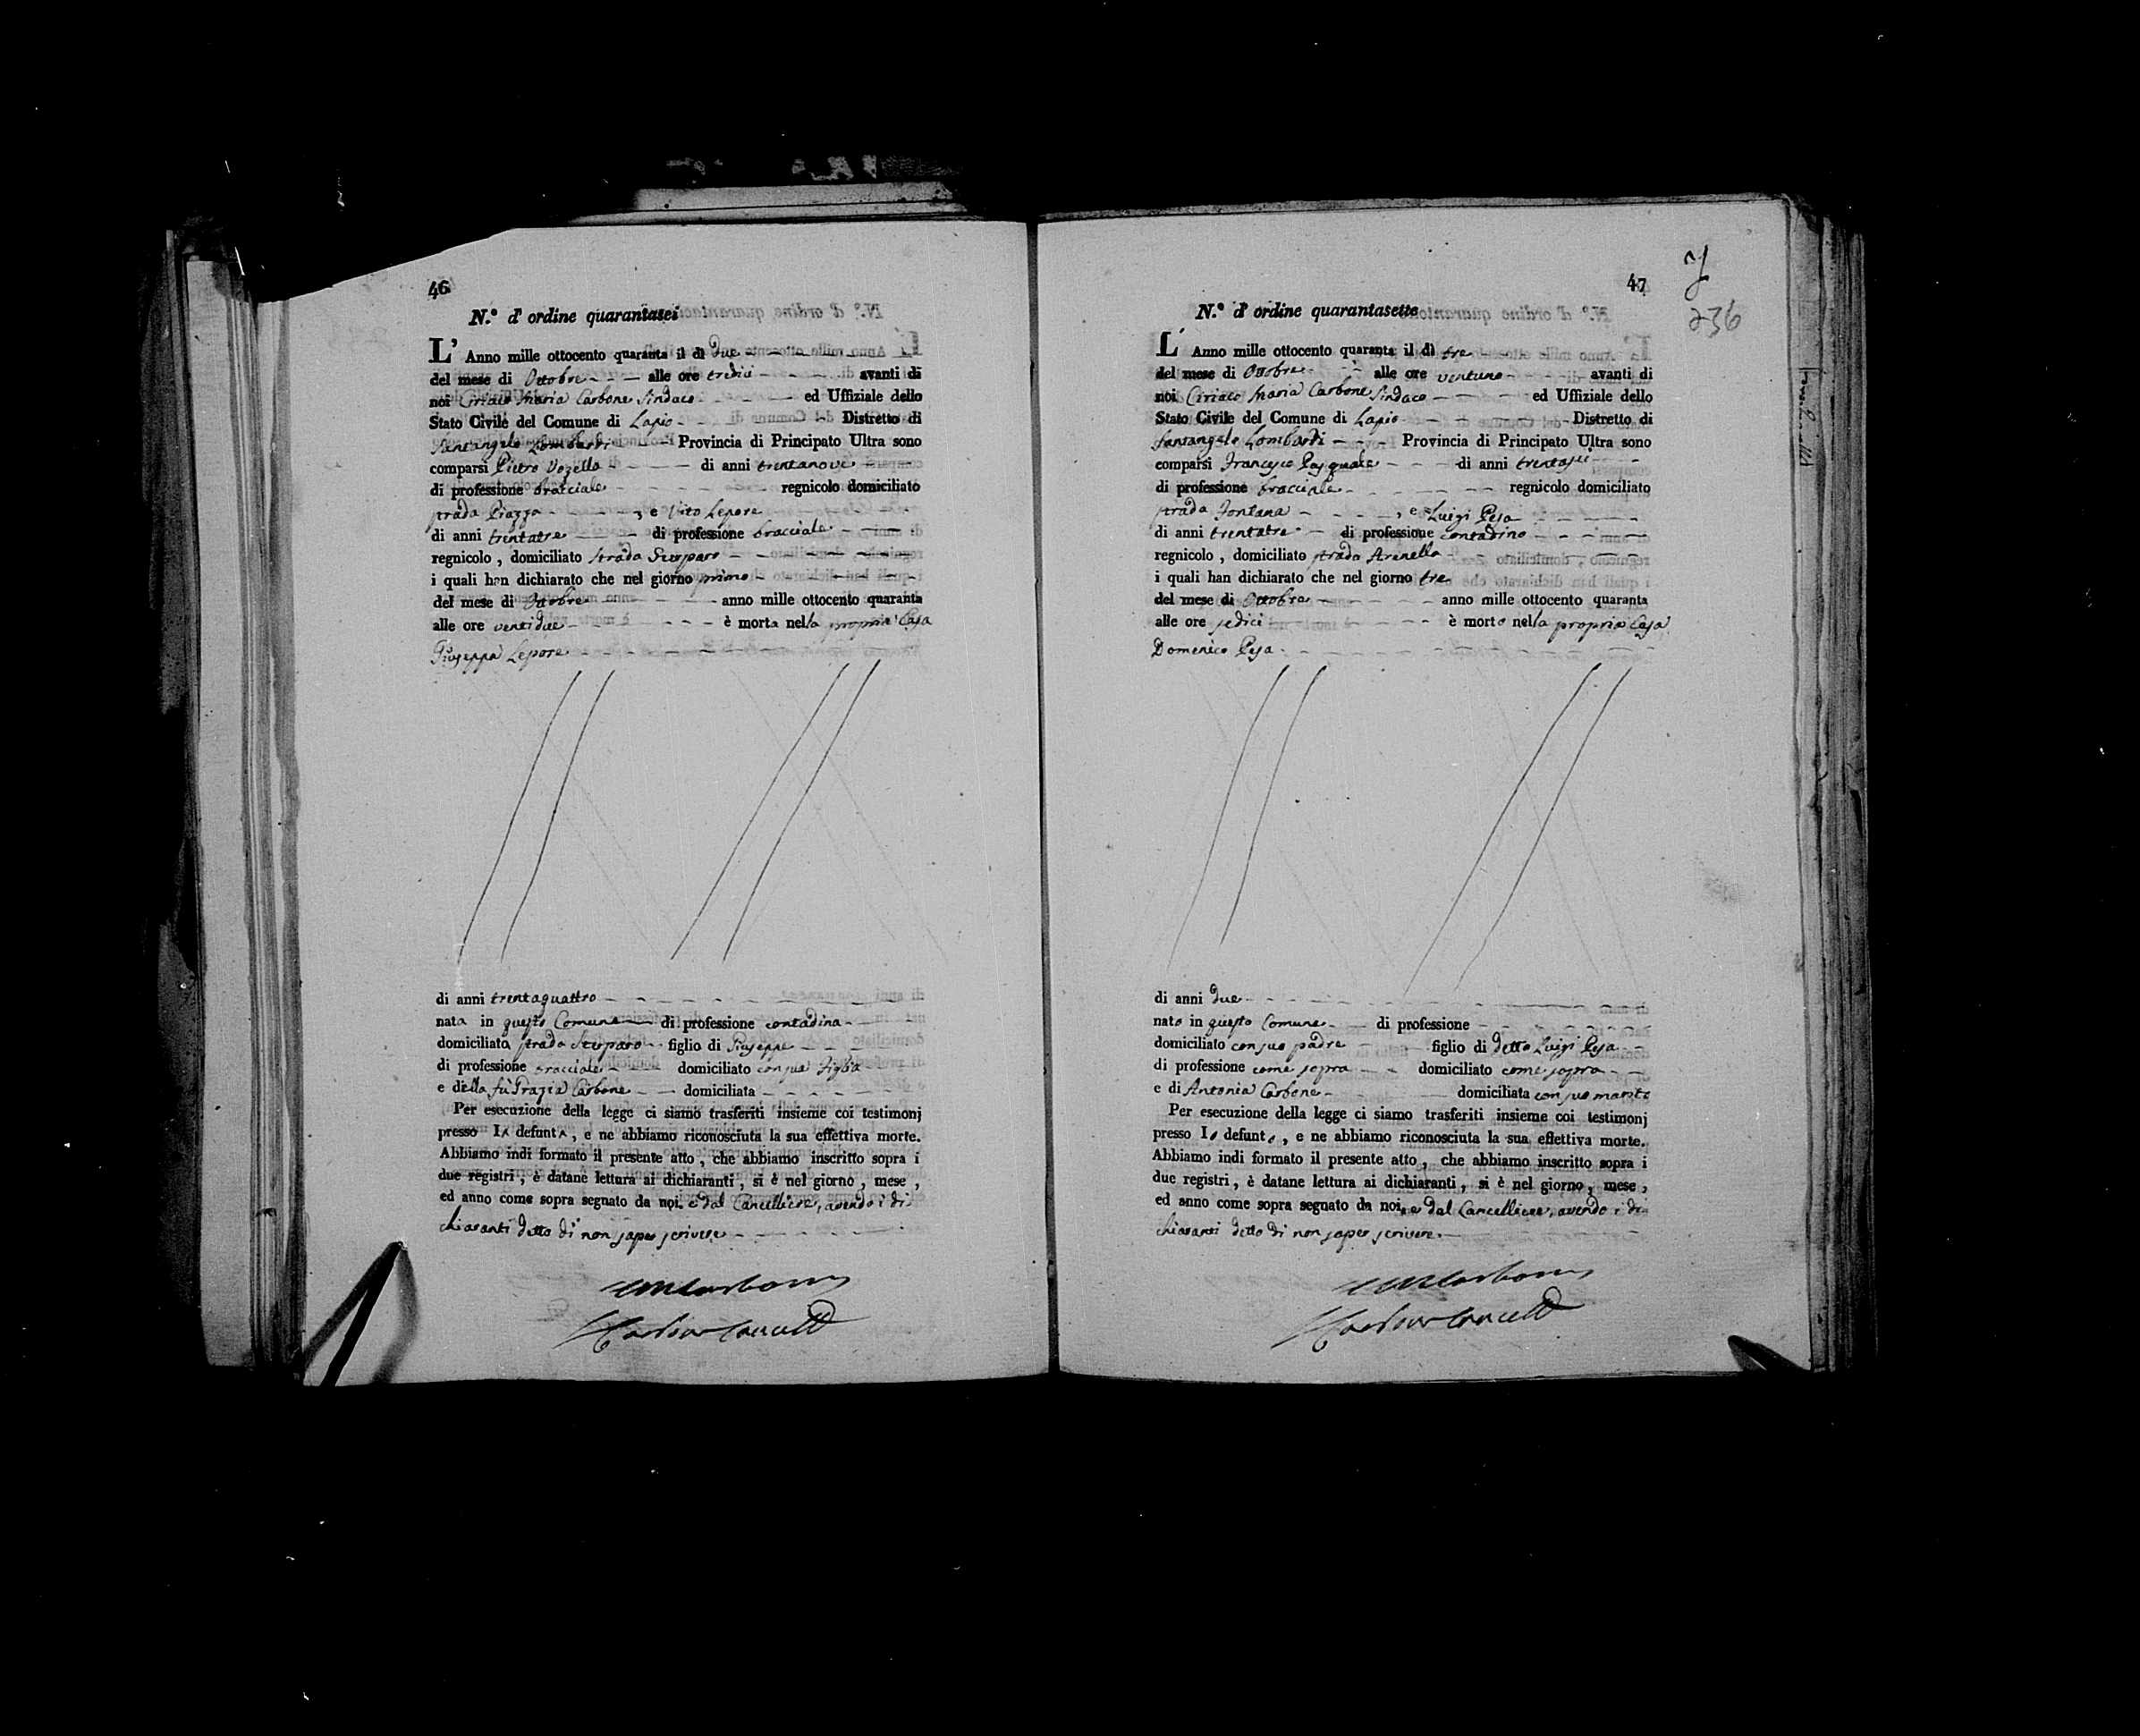 46
N.º d' ordine quarantasei
L' Anno mille ottocento quaranta il dì due
del mese di Ottobre alle ore tredici avanti di
noi Ciriaco Maria Carbone Sindaco ed Uffiziale dello
Stato Civile del Comune di Lapio Distretto di
Santangelo Lombardi Provincia di Principato Ultra sono
comparsi Pietro Vozella di anni trentanove
di professione bracciale regnicolo domiciliato
strada Piazza , e Vito Lepore
di anni trentatre di professione bracciale
regnicolo , domiciliato strada Scorparo
i quali han dichiarato che nel giorno primo
del mese di Ottobre anno mille ottocento quaranta
alle ore ventidue è morta nella propria Casa
Giuseppa Lepore
di anni trentaquattro
nata in questo Comune di professione contadina
domiciliata strada Scorparo figlio di Giuseppe
di professione bracciale domiciliato con sua figlia
e della fù Grazia Carbone domiciliata
Per esecuzione della legge ci siamo trasferiti insieme coi testimonj
presso la defunta , e ne abbiamo riconosciuta la sua effettiva morte.
Abbiamo indi formato il presente atto , che abbiamo inscritto sopra i
due registri , è datane lettura ai dichiaranti , si è nel giorno , mese ,
ed anno come sopra segnato da noi. e dal Cancelliere, avendo i di
chiaranti detto di non saper scrivere
CM Carbone
Carbone Cancell
47
236
N.º d' ordine quarantasette
L' Anno mille ottocento quaranta il dì tre
del mese di Ottobre alle ore ventuno avanti di
noi Ciriaco Maria Carbone Sindaco ed Uffiziale dello
Stato Civile del Comune di Lapio Distretto di
Santangelo Lombardi Provincia di Principato Ultra sono
comparsi Francesco Pasquale di anni trentasei
di professione bracciale regnicolo domiciliato
strada Fontana , e Luigi Pesa
di anni trentatre di professione contadino
regnicolo , domiciliato strada Arenella
i quali han dichiarato che nel giorno tre
del mese di Ottobre anno mille ottocento quaranta
alle ore sedici è morto nella propria Casa
Domenico Pesa
di anni due
nato in questo Comune di professione
domiciliato con suo padre figlio di detto Luigi Pesa
di professione come sopra domiciliato come sopra
e di Antonia Carbone domiciliata con suo marito
Per esecuzione della legge ci siamo trasferiti insieme coi testimonj
presso lo defunto , e ne abbiamo riconosciuta la sua effettiva morte.
Abbiamo indi formato il presente atto , che abbiamo inscritto sopra i
due registri , è datane lettura ai dichiaranti , si è nel giorno , mese ,
ed anno come sopra segnato da noi, e dal Cancelliere, avendo i di
chiaranti detto di non saper scrivere
CM Carbone
Carbone Cancell